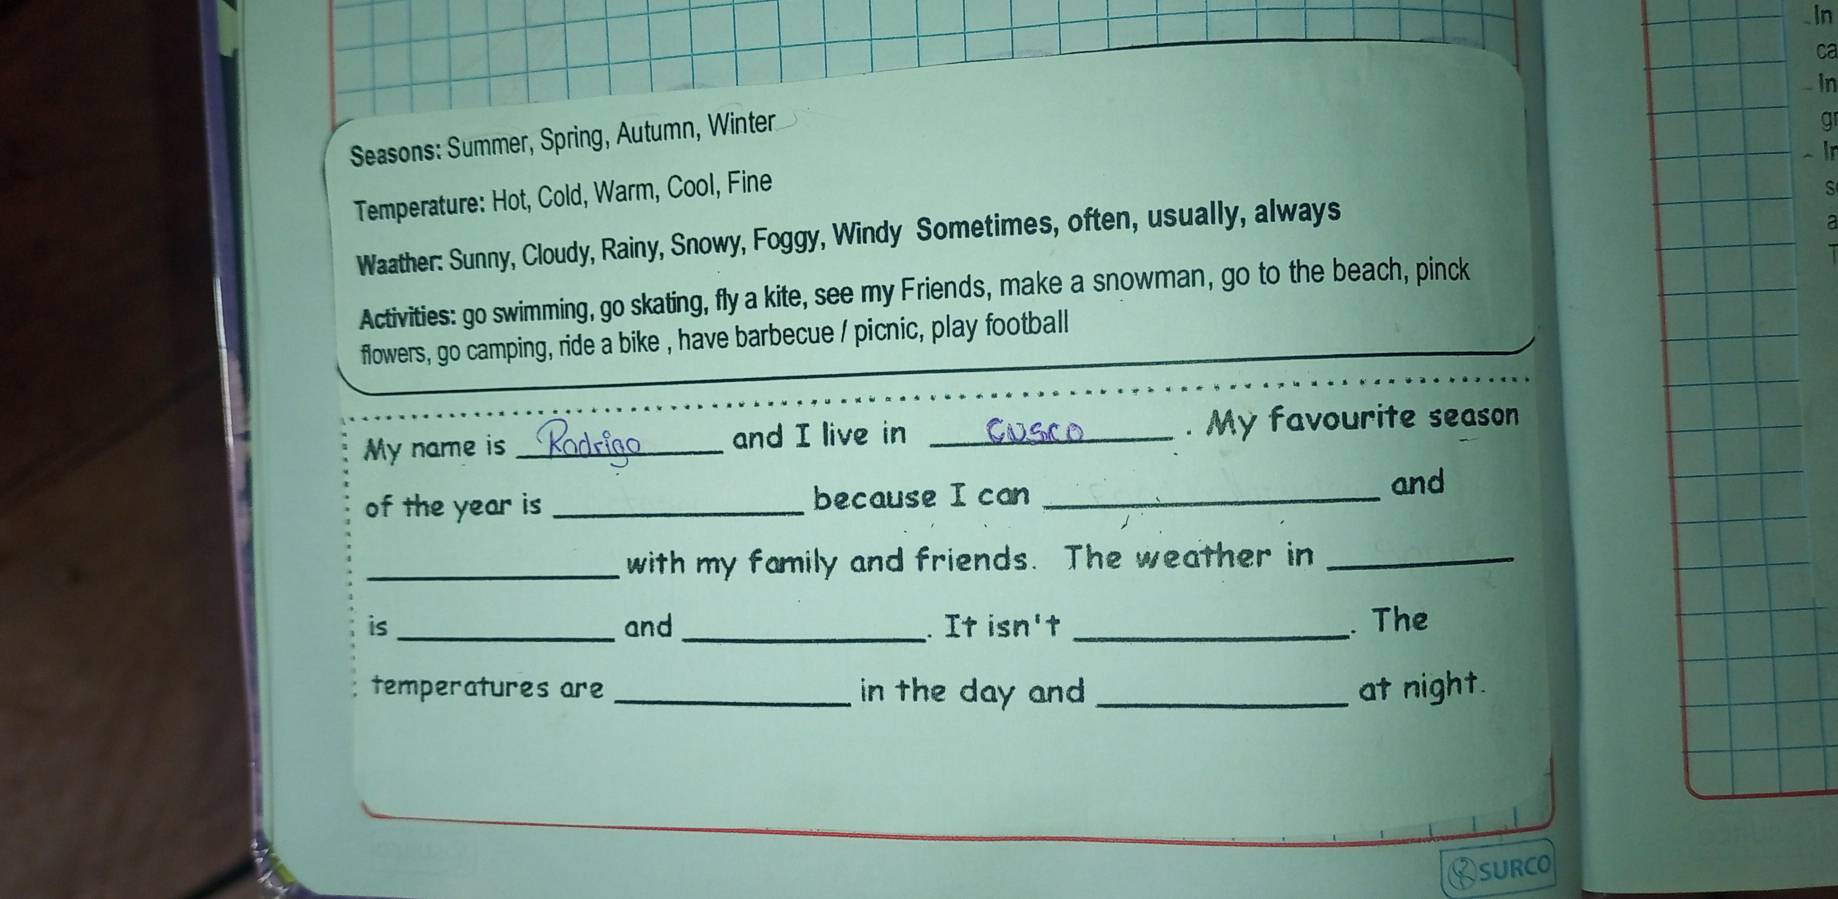 Seasons: Summer, Spring, Autumn, Winter
Temperature: Hot, Cold, Warm, Cool, Fine
Waather: Sunny, Cloudy, Rainy, Snowy, Foggy, Windy Sometimes, often, usually, always
Activities: go swimming, go skating, fly a kite, see my Friends, make a snowman, go to the beach, pinck
flowers, go camping, ride a bike , have barbecue / picnic, play football
My name is Rodrigo and I live in Cusco . My favourite season
of the year is ____________ because I can ____________ and
____________ with my family and friends. The weather in ____________
is ____________ and ____________. It isn't ____________. The
temperatures are ____________ in the day and ____________ at night.
SURCO
In
In